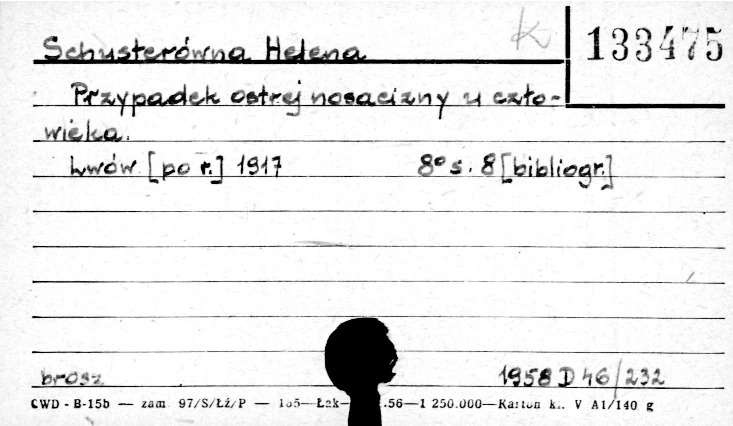 K
133475
Schusterówna Helena
Przypadek ostrej nosacizny u czło-
wieka.
Lwów [po r.] 1917 8° s. 8 [bibliogr.]
brosz 1958 D 46/232
CWD - B-15b — zam. 97/S/Łź/P — Łzk— .56—1 250.000—Karton V A1/140 g